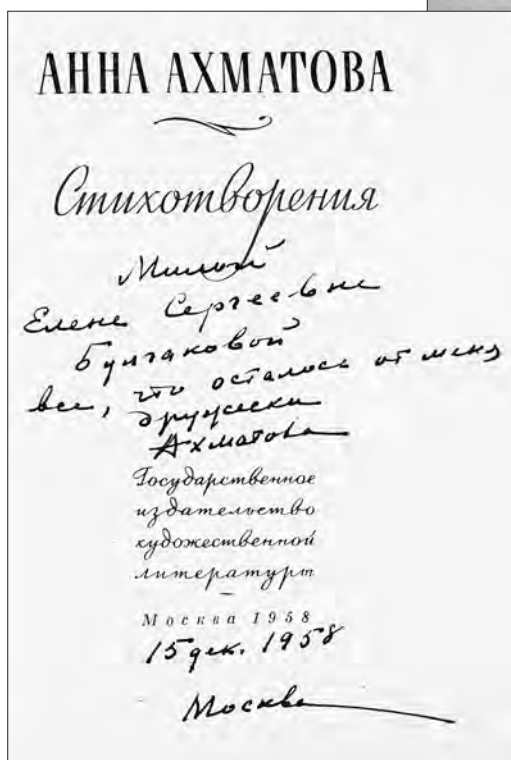 АННА АХМАТОВА
Стихотворения
Милой
Елене Сергеевне
Булгаковой
все, что осталось от меня
дружески
Ахматова
Государственное
издательство
художественной
литературы
Москва 1958
15 дек. 1958
Москва